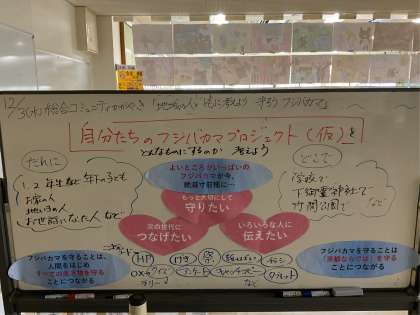 12/3(水)総合コミュニティかがやき「地域の人と共に考えよう 守ろうフジバカマ」
自分たちのフジバカマプロジェクト(仮)を
どんなものにするのか 考えよう
だれに
1、2年生など年下の子ども
お家の人
地いきの人
お世話になった人 など
どこで
学校で
下御霊神社で
竹間公園で
など
よいところがいっぱいの
フジバカマが今、
絶滅寸前種に…
もっと大切にして
守りたい
次の世代に
つなげたい
いろいろな人に
伝えたい
フジバカマを守ることは、
人間をはじめ
すべての生き物を守る
ことにつながる
フジバカマを守ることは
「京都ならでは」を守る
ことにつながる
HP
劇
祭
チラシ
○×クイズ
アンケート
キャッチコピー
タブレット
ラリー
など